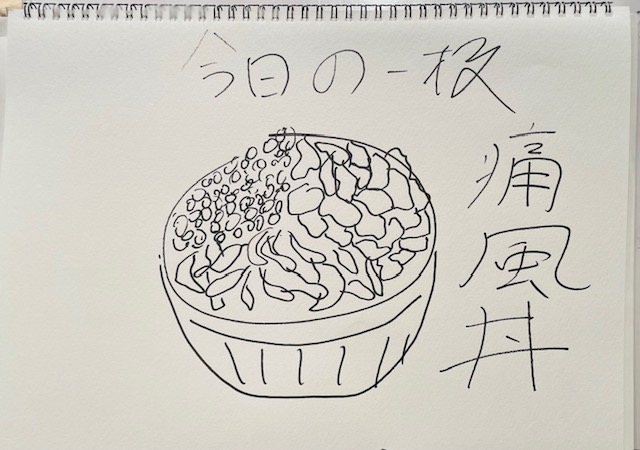 今日の一枚
痛風丼